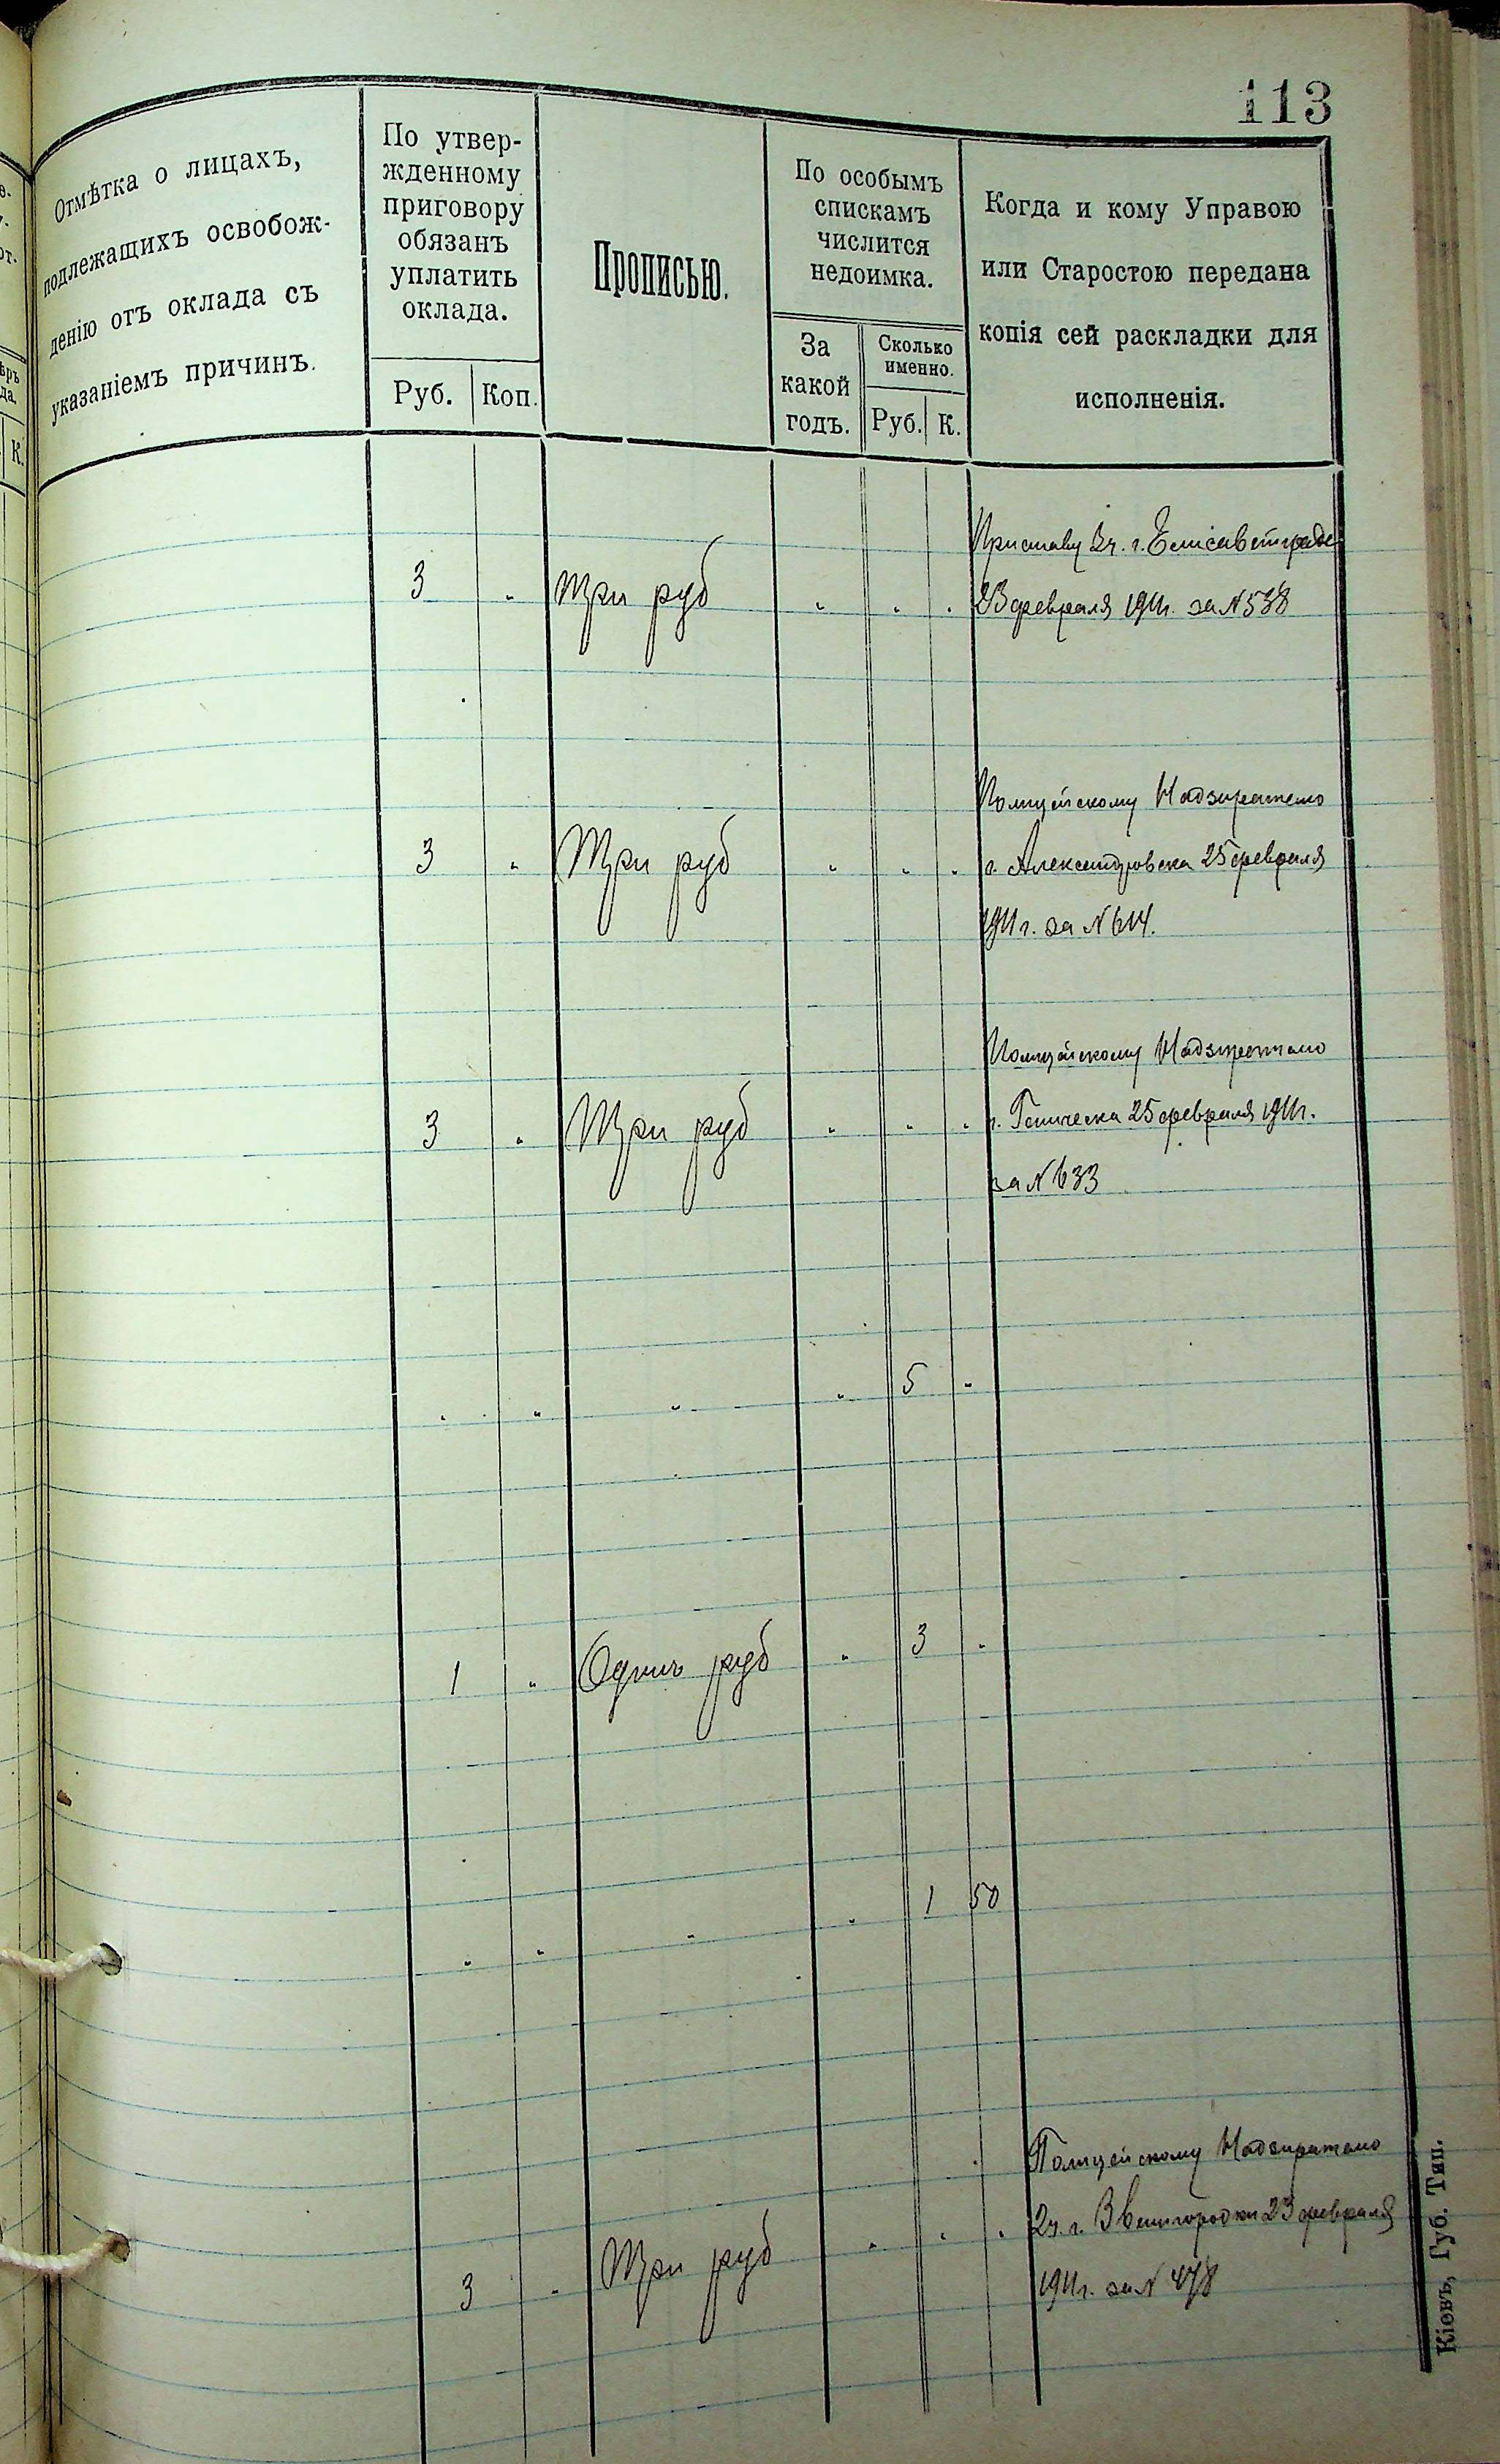 113
Отмѣтка о лицахъ,
подлежащихъ освобож-
денію отъ оклада съ
указаніемъ причинъ.
По утвер-
жденному
приговору
обязанъ
уплатить
оклада.
Руб. Коп.
Прописью.
По особымъ
спискамъ
числится
недоимка.
За
какой
годъ.
Сколько
именно.
Руб. К.
Когда и кому Управою
или Старостою передана
копія сей раскладки для
исполненія.
К.
Приставу 3 ч. г. Елисаветграда
3 " Три руб " " " 23 февраля 1911 г. за N 538
Полицейскому Надзирателю
3 " Три руб " " " г. Александровска 25 февраля
1911 г. за N 614.
Полицейскому Надзирателю
3 " Три руб " " " г. Геническа 25 февраля 1911 г.
за N 633
" " " " 5 "
1 " Одинъ руб " 3 "
" " " " 1 50
Полицейскому Надзирателю
3 " Три руб " " " 2 ч. г. Звенигородки 23 февраля
1911 г. за N 478
Кіевъ, Губ. Тип.